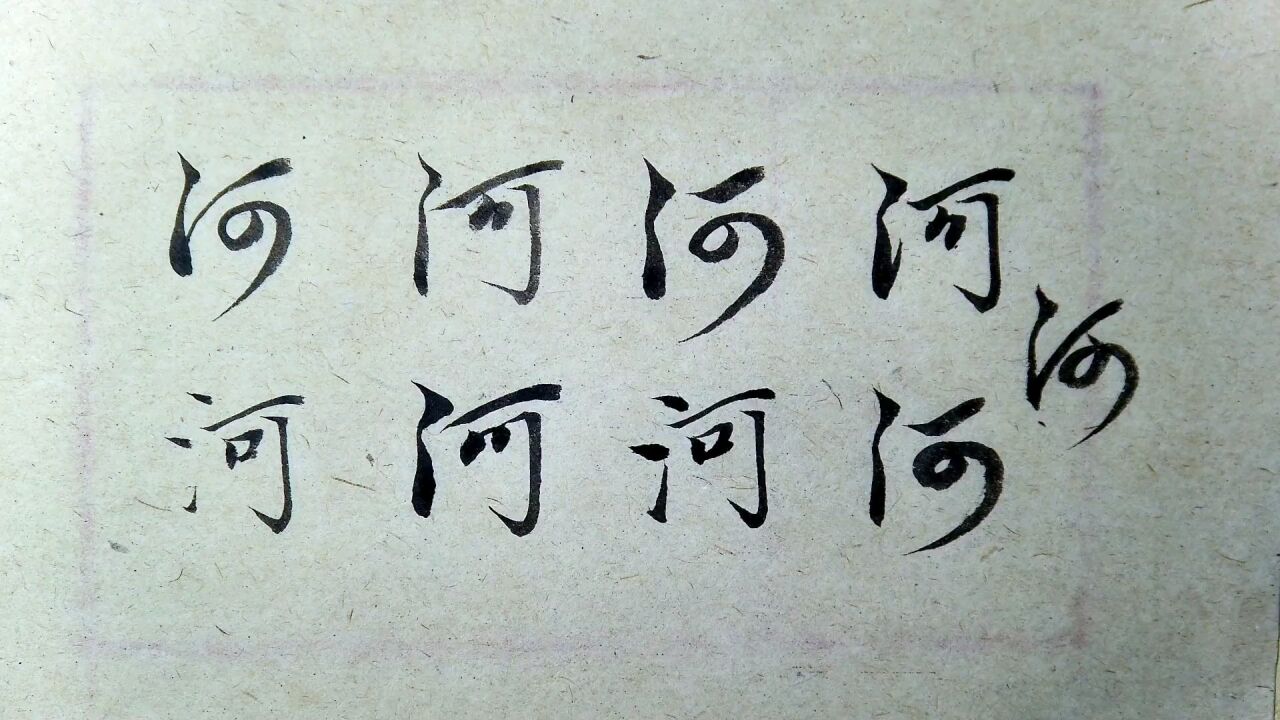 河 河 河 河
河
河 河 河 河